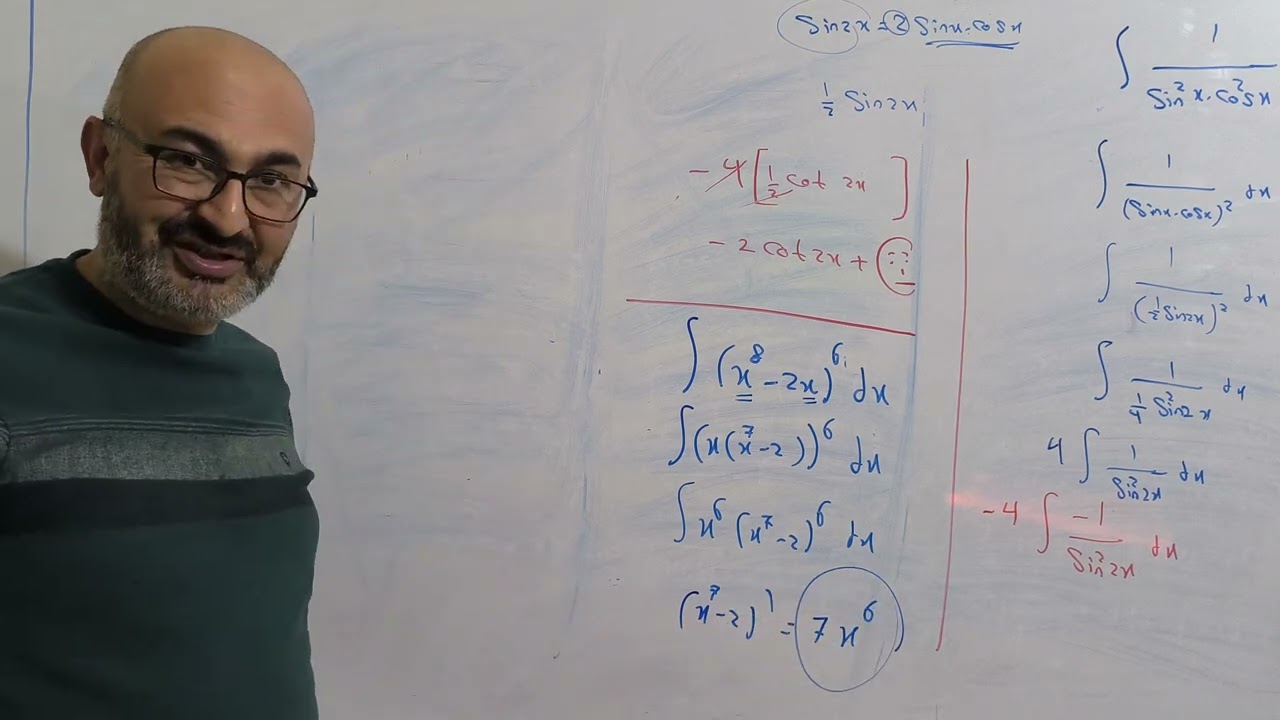 Sin2x = 2 Sinx.cosx
1/2 Sin2x
-4[1/2 cot 2x]
-2 cot 2x +
∫ (x⁸ - 2x)⁶ dx
∫ (x(x⁷ - 2))⁶ dx
∫ x⁶ (x⁷ - 2)⁶ dx
(x⁷ - 2)' = 7x⁶
∫ 1/(Sin²x.cos²x)
∫ 1/(Sinx.cosx)² dx
∫ 1/(1/2 Sin2x)² dx
∫ 1/(1/4 Sin²2x) dx
4 ∫ 1/(Sin²2x) dx
-4 ∫ -1/(Sin²2x) dx